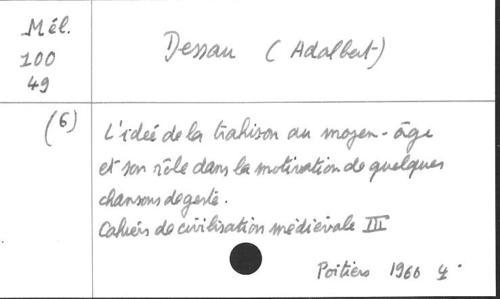 Mél.
100
49
Dessau (Adalbert)
(6)
L'idée de la trahison au moyen-âge
et son rôle dans la motivation de quelques
chansons de geste.
Cahiers de civilisation médiévale III
Poitiers 1960 4.